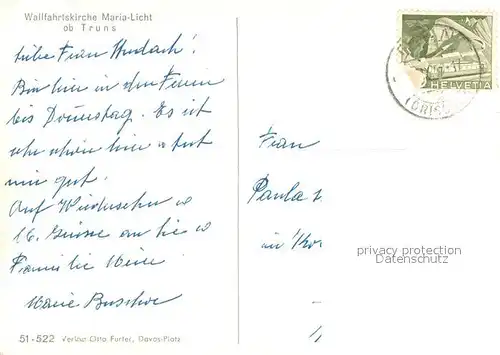 Wallfahrtskirche Maria-Licht
ob Truns
Liebe Frau
Bin hier in den Ferien
bis Donnstag. Es ist
sehr schön hier u tut
mir gut.
Auf Wiedersehn u
Grüsse an Sie u
Familie Meier
Marie
51-522 Verlag Otto Furter, Davos-Platz
HELVETIA
Frau
Paula
in
privacy protection
Datenschutz